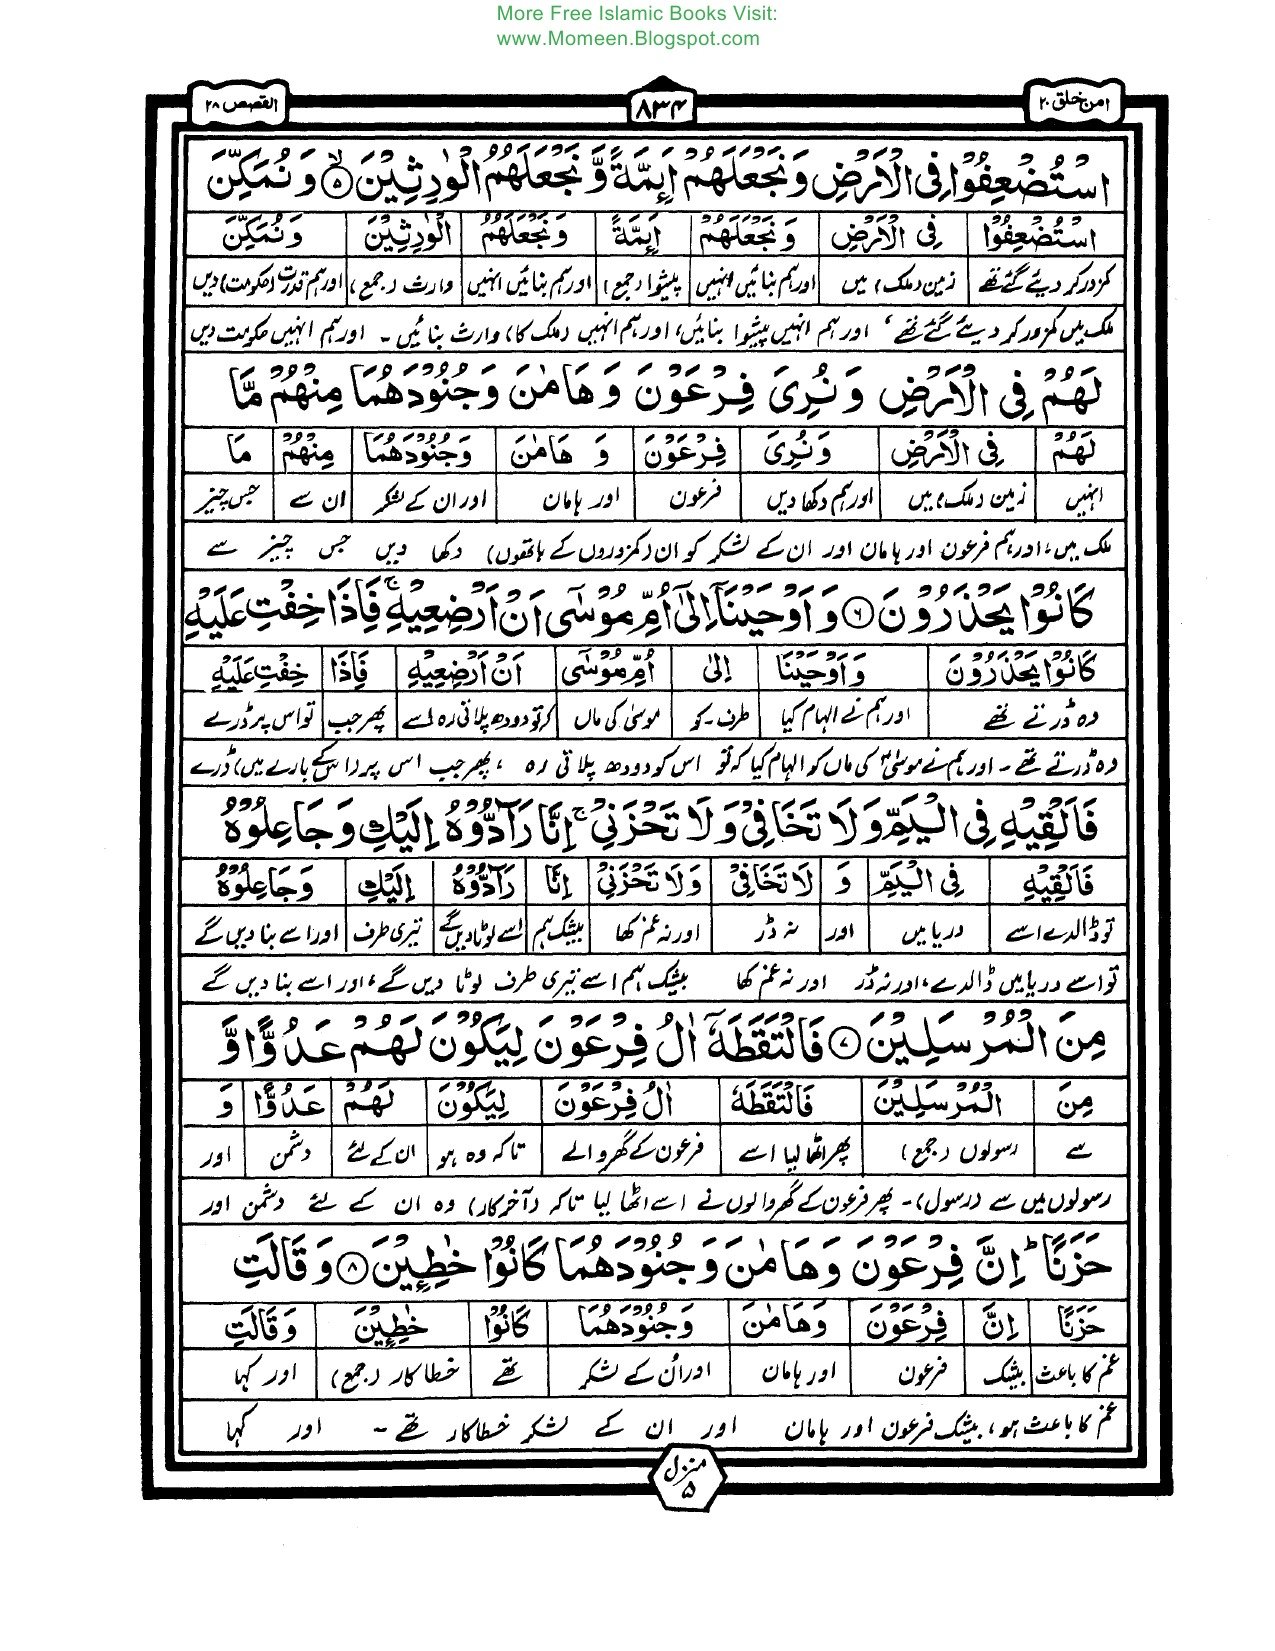 More Free Islamic Books Visit:
www.Momeen.Blogspot.com
امن خلق ۲۰ ۸۳۴ القصص ۲۸
اسْتُضْعِفُوْا فِی الْاَرْضِ وَ نَجْعَلَهُمْ اَىِٕمَّةً وَّ نَجْعَلَهُمُ الْوٰرِثِیْنَ ۵ وَ نُمَكِّنَ
اسْتُضْعِفُوْا فِی الْاَرْضِ وَ نَجْعَلَهُمْ اَىِٕمَّةً وَ نَجْعَلَهُمُ الْوٰرِثِیْنَ وَ نُمَكِّنَ
کمزور کر دیئے گئے تھے زمین (ملک) میں اور ہم بنائیں انہیں پیشوا (جمع) اور ہم بنائیں انہیں وارث (جمع) اور ہم قدرت (حکومت) دیں
ملک میں کمزور کر دیئے گئے تھے، اور ہم انہیں پیشوا بنائیں، اور ہم انہیں (ملک کا) وارث بنائیں ۔ اور ہم انہیں حکومت دیں
لَهُمْ فِی الْاَرْضِ وَ نُرِیَ فِرْعَوْنَ وَ هَامٰنَ وَ جُنُوْدَهُمَا مِنْهُمْ مَّا
لَهُمْ فِی الْاَرْضِ وَ نُرِیَ فِرْعَوْنَ وَ هَامٰنَ وَ جُنُوْدَهُمَا مِنْهُمْ مَا
انہیں زمین (ملک) میں اور ہم دکھا دیں فرعون اور ہامان اور ان کے لشکر ان سے جس چیز
ملک میں، اور ہم فرعون اور ہامان اور ان کے لشکر کو ان (کمزوروں کے ہاتھوں) دکھا دیں جس چیز سے
كَانُوْا یَحْذَرُوْنَ ۶ وَ اَوْحَیْنَاۤ اِلٰۤى اُمِّ مُوْسٰۤى اَنْ اَرْضِعِیْهِ ۚ فَاِذَا خِفْتِ عَلَیْهِ
كَانُوْا یَحْذَرُوْنَ وَ اَوْحَیْنَا اِلٰى اُمِّ مُوْسٰۤى اَنْ اَرْضِعِیْهِ فَاِذَا خِفْتِ عَلَیْهِ
وہ ڈرتے تھے اور ہم نے الہام کیا طرف۔کو موسیٰ کی ماں کہ تو دودھ پلاتی رہ اسے پھر جب تو اس پر ڈرے
وہ ڈرتے تھے ۔ اور ہم نے موسیٰؑ کی ماں کو الہام کیا کہ تو اس کو دودھ پلاتی رہ، پھر جب اس پر (اس کے بارے میں) ڈرے
فَاَلْقِیْهِ فِی الْیَمِّ وَ لَا تَخَافِیْ وَ لَا تَحْزَنِیْ ۚ اِنَّا رَآدُّوْهُ اِلَیْكِ وَ جَاعِلُوْهُ
فَاَلْقِیْهِ فِی الْیَمِّ وَ لَا تَخَافِیْ وَ لَا تَحْزَنِیْ اِنَّا رَآدُّوْهُ اِلَیْكِ وَ جَاعِلُوْهُ
تو ڈالدے اسے دریا میں اور نہ ڈر اور نہ غم کھا بیشک ہم اسے لوٹا دیں گے تیری طرف اور اسے بنا دیں گے
تو اسے دریا میں ڈالدے، اور نہ ڈر اور نہ غم کھا بیشک ہم اسے تیری طرف لوٹا دیں گے، اور اسے بنا دیں گے
مِنَ الْمُرْسَلِیْنَ ۷ فَالْتَقَطَهٗۤ اٰلُ فِرْعَوْنَ لِیَكُوْنَ لَهُمْ عَدُوًّا وَّ
مِنَ الْمُرْسَلِیْنَ فَالْتَقَطَهٗ اٰلُ فِرْعَوْنَ لِیَكُوْنَ لَهُمْ عَدُوًّا وَ
سے رسولوں (جمع) پھر اٹھا لیا اسے فرعون کے گھر والے تاکہ وہ ہو ان کے لئے دشمن اور
رسولوں میں سے (رسول)۔ پھر فرعون کے گھر والوں نے اسے اٹھا لیا تاکہ (آخر کار) وہ ان کے لئے دشمن اور
حَزَنًا ؕ اِنَّ فِرْعَوْنَ وَ هَامٰنَ وَ جُنُوْدَهُمَا كَانُوْا خٰطِـِٕیْنَ ۸ وَ قَالَتِ
حَزَنًا اِنَّ فِرْعَوْنَ وَ هَامٰنَ وَ جُنُوْدَهُمَا كَانُوْا خٰطِـِٕیْنَ وَ قَالَتِ
غم کا باعث بیشک فرعون اور ہامان اور اُن کے لشکر تھے خطا کار (جمع) اور کہا
غم کا باعث ہو، بیشک فرعون اور ہامان اور ان کے لشکر خطاکار تھے ۔ اور کہا
منزل ۵